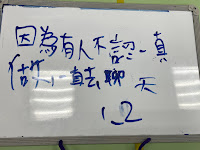 因為有人不認真
做,一直去聊天
1、2